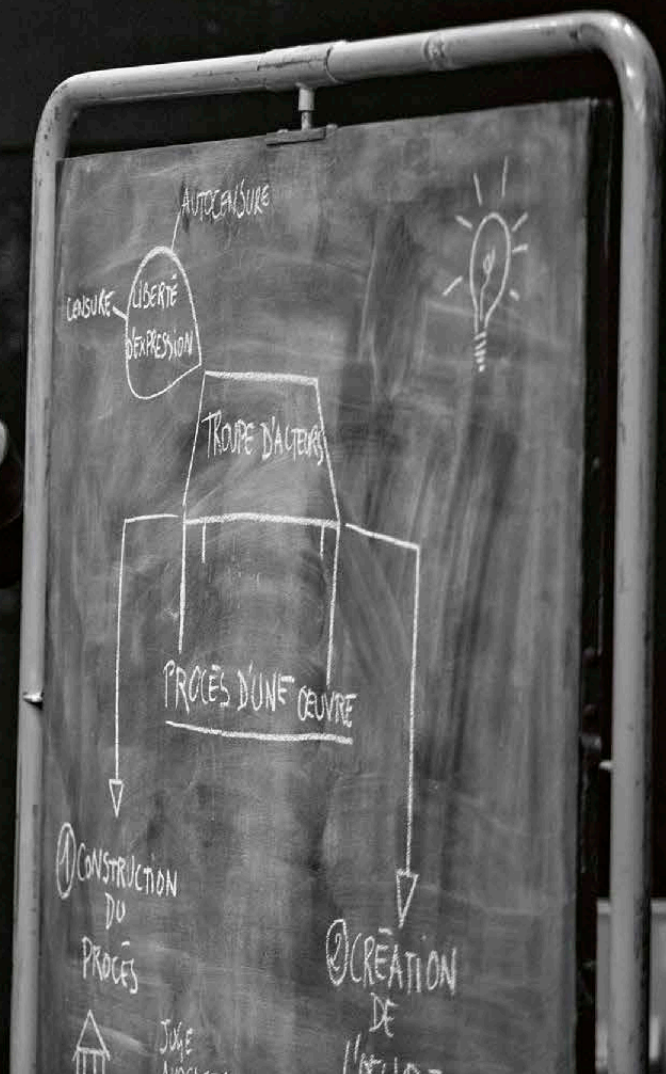 AUTOCENSURE
CENSURE
LIBERTÉ
D'EXPRESSION
TROUPE D'ACTEURS
PROCÈS D'UNE ŒUVRE
1 CONSTRUCTION
DU
PROCÈS
JUGE
2 CRÉATION
DE